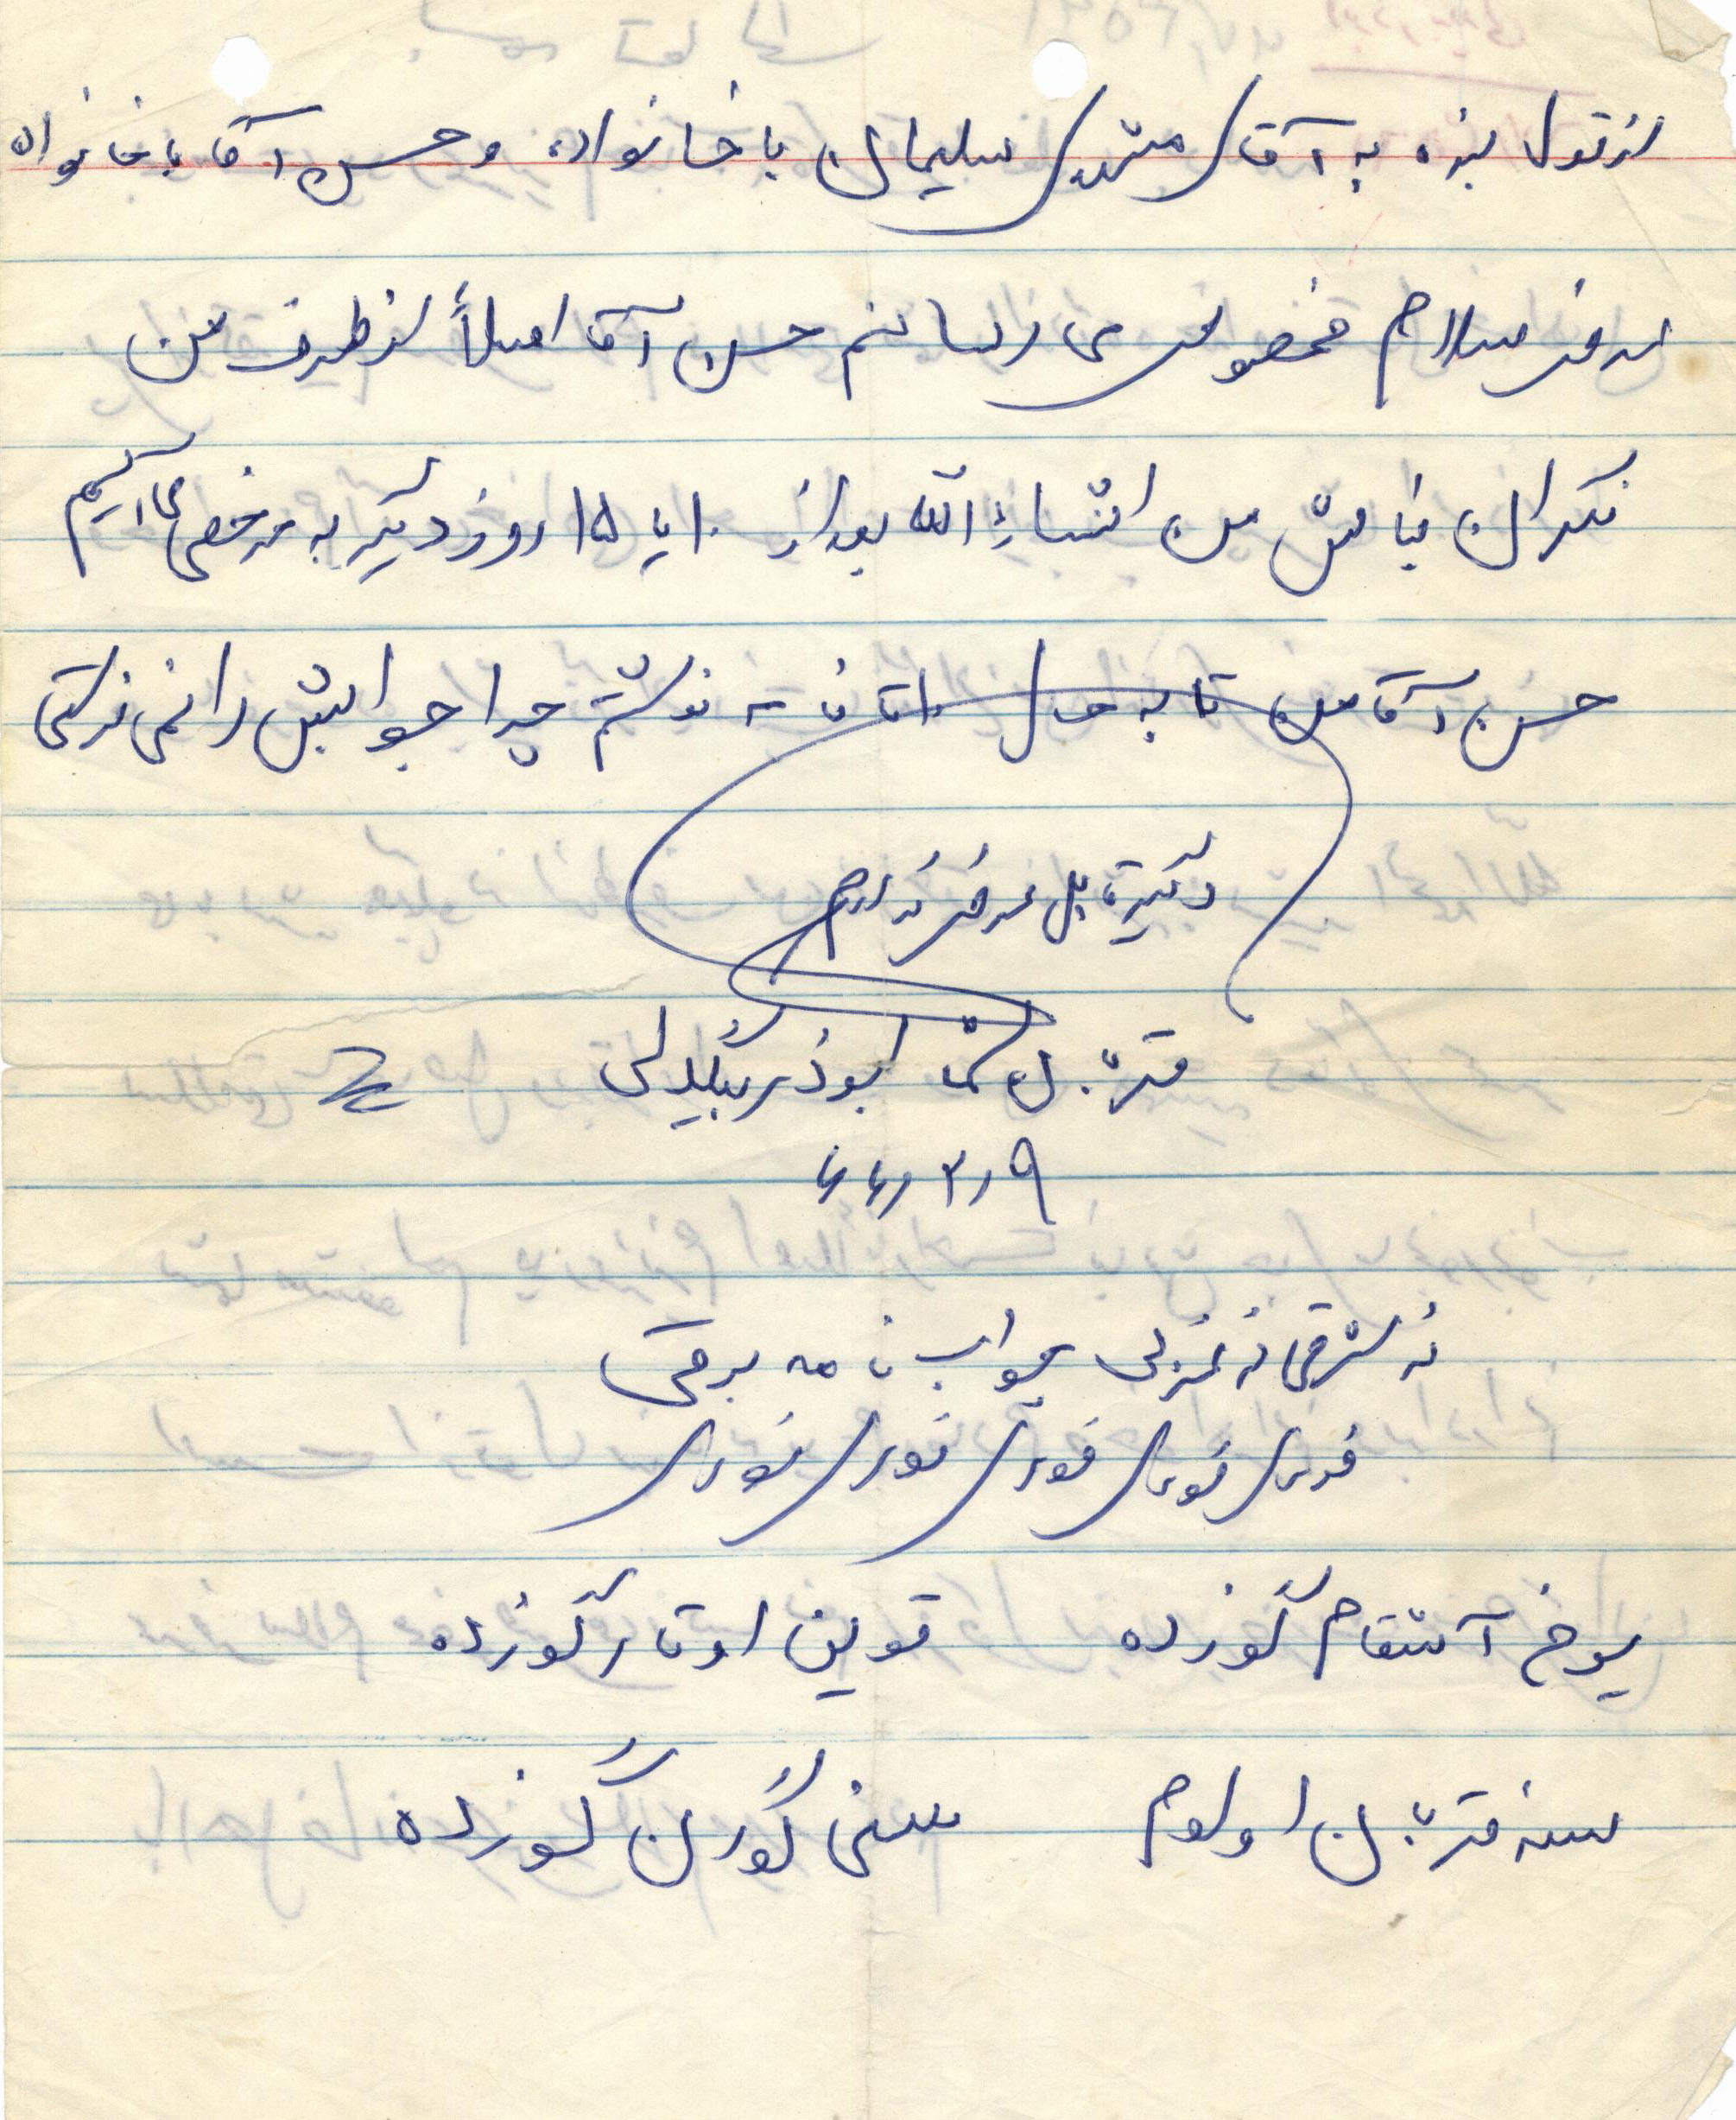 از قول بنده به آقای مشهدی سلیمان با خانواده و حسن آقا با خانواده
عرض سلام مخصوص می رسانم حسن آقا اصلاً از طرف من
نگران نباش من انشاءالله بعد از ۱۰ یا ۱۵ روز دیگر به مرخصی می آیم
حسن آقا من تا به حال نامه نوشتم چرا جوابش را نمی نویسی
دیگر قابل عرض ندارم
قربان شما ابوذر بیگدلی
۶۶٫۳٫۹
نه شرقی نه غربی جواب نامه برقی
فوری فوری فوری فوری فوری
یوخ آشقام گوزده قوین اوتار گوزده
سنه قربان اولوم سنی گورن گوزده